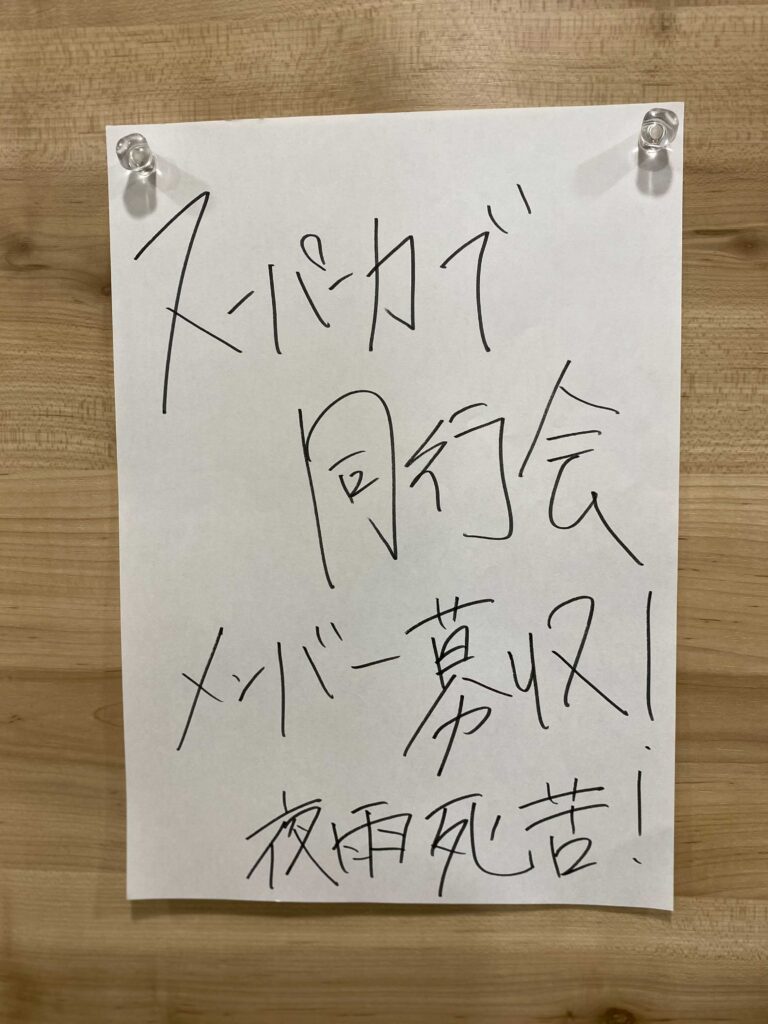 スーパーカで
同行会
メンバー募収!
夜雨死苦!